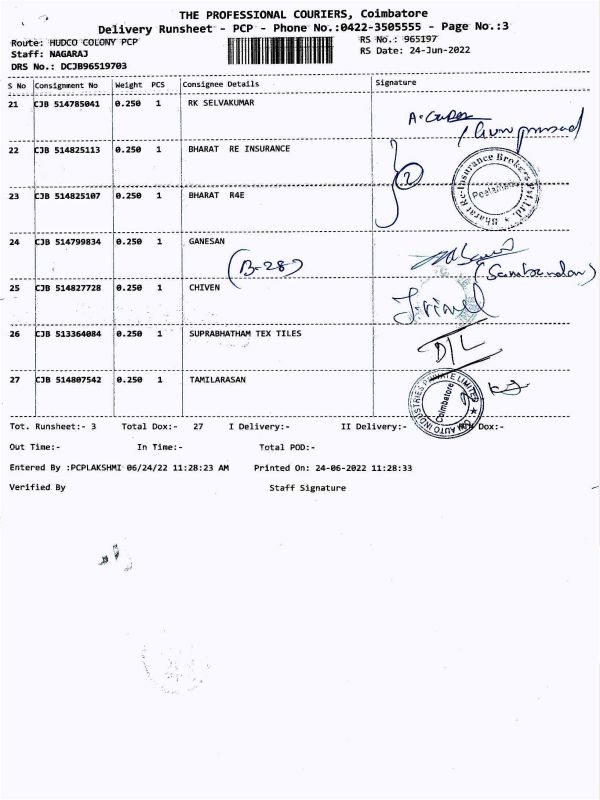 THE PROFESSIONAL COURIERS, Coimbatore
Delivery Runsheet - PCP - Phone No.:0422-3505555 - Page No.:3
Route: HUDCO COLONY PCP
RS No.: 965197
Staff: NAGARAJ
RS Date: 24-Jun-2022
DRS No.: DCJB96519703
S No Consignment No Weight PCS Consignee Details Signature
21 CJB 514785041 0.250 1 RK SELVAKUMAR
22 CJB 514825113 0.250 1 BHARAT RE INSURANCE
2
Bharat Re-Insurance Brokers Pvt. Ltd.
23 CJB 514825107 0.250 1 BHARAT R4E
24 CJB 514799834 0.250 1 GANESAN
(B-28)
(Sambandan)
25 CJB 514827728 0.250 1 CHIVEN
26 CJB 513364084 0.250 1 SUPRABHATHAM TEX TILES
D/L
27 CJB 514807542 0.250 1 TAMILARASAN
AUTO INDUSTRIES PRIVATE LIMITED
Coimbatore
Tot. Runsheet:- 3 Total Dox:- 27 I Delivery:- II Delivery:- Dox:-
Out Time:- In Time:- Total POD:-
Entered By :PCPLAKSHMI 06/24/22 11:28:23 AM Printed On: 24-06-2022 11:28:33
Verified By Staff Signature